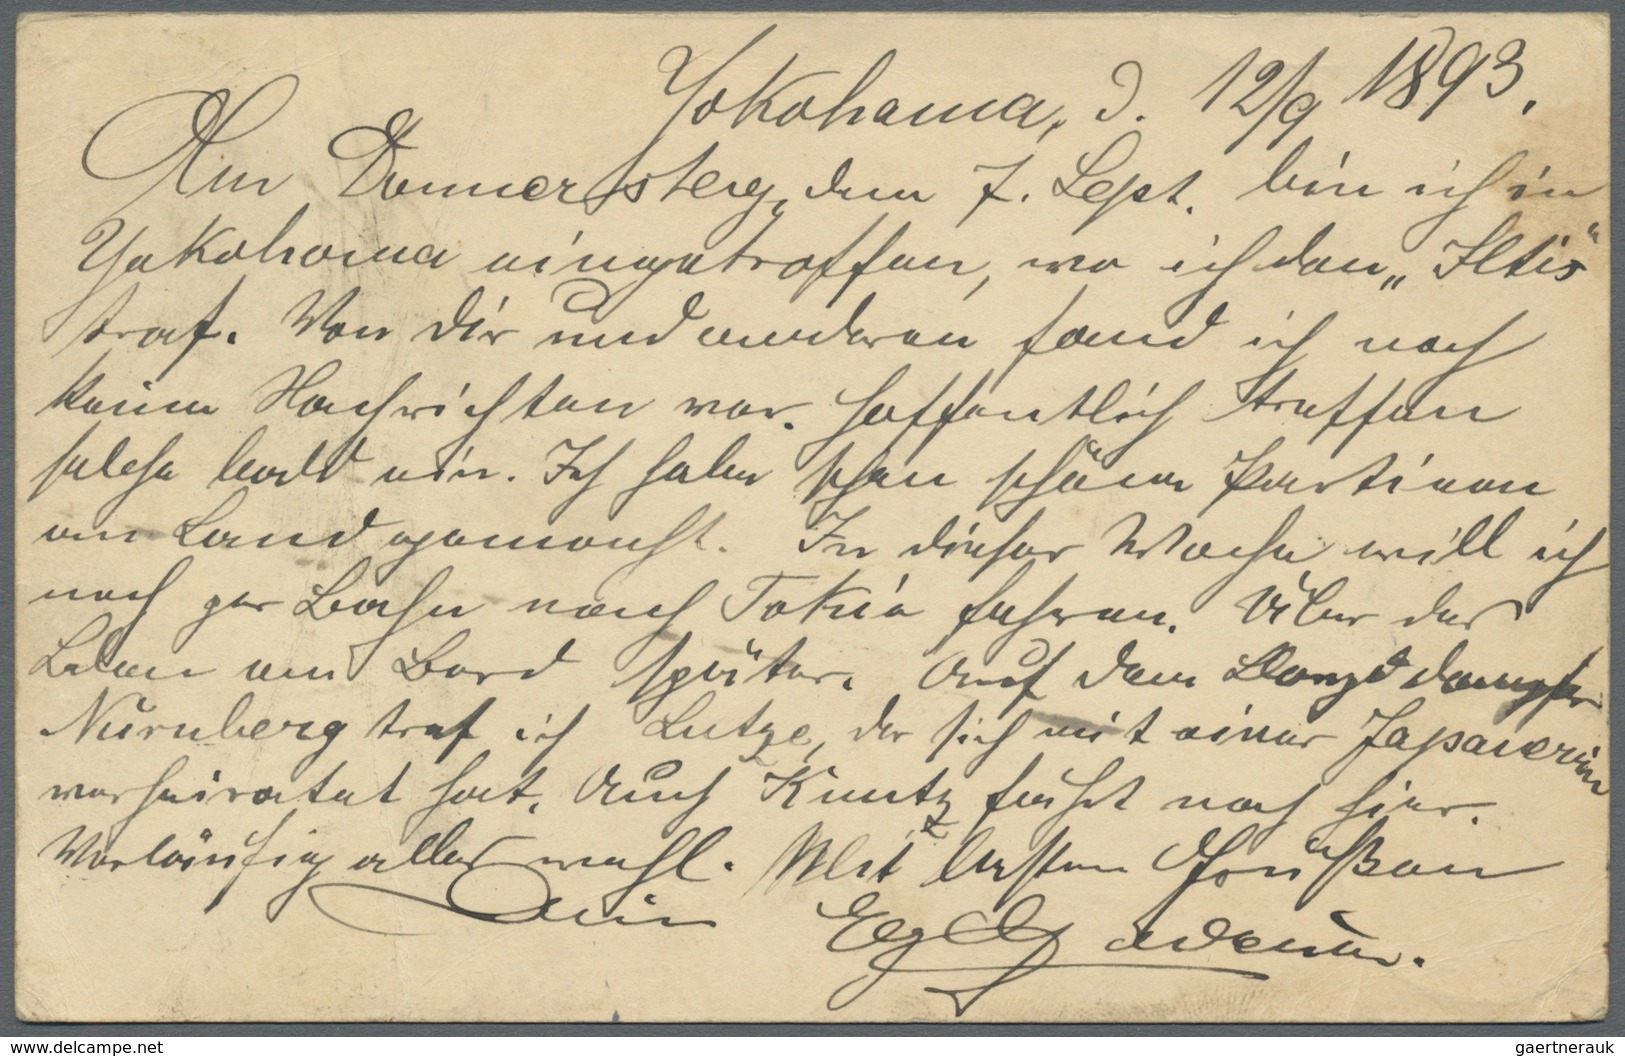 Yokohama, d. 12/9 1893.
Am Donnerstag, den 7. Sept. bin ich in
Yokohama eingetroffen, wo ich den „Iltis“
traf. Von Dir und anderen fand ich noch
keine Nachrichten vor. Hoffentlich treffen
solche bald ein. Ich habe schon schöne Partieen
an Land gemacht. In dieser Woche will ich
noch per Bahn nach Tokio fahren. Über das
Leben an Bord später. Auf dem Lloyddampfer
Nürnberg traf ich Lutze, der sich mit einer Japanerin
verheiratet hat. Auch Kuntz fährt noch hier.
Vorläufig alles wohl. Mit besten Grüßen
Dein
delcampe.net
gaertnerauk